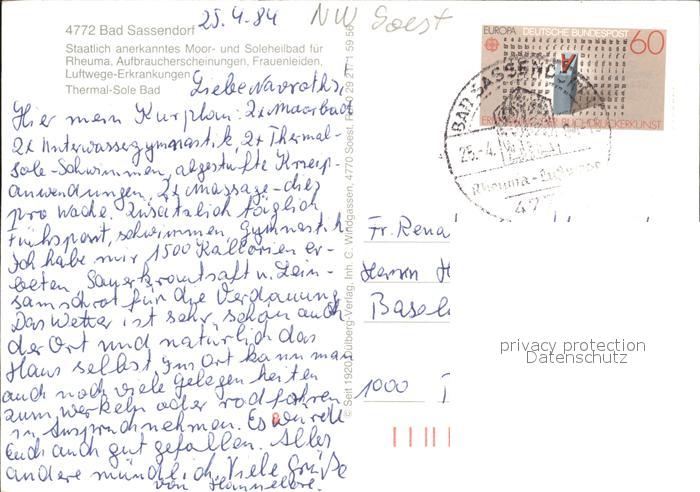 25.4.84
NW Soest
4772 Bad Sassendorf
Staatlich anerkanntes Moor- und Soleheilbad für
Rheuma, Aufbraucherscheinungen, Frauenleiden,
Luftwege-Erkrankungen
Thermal-Sole Bad
Liebe Nawroths,
Hier mein Kurplan: 2x Moorbad
2x Unterwassergymnastik, 2x Thermal-
sole-Schwimmen, abgestufte Kneip-
anwendungen, 2x Massage - dies
pro Woche. Zusätzlich täglich
Frühsport, schwimmen, Gymnastik
Ich habe mir 1500 Kallorien er-
beten, Sauerkrautsaft u. Lein-
samschrot für die Verdauung
Das Wetter ist sehr schön auch
der Ort und natürlich das
Haus selbst, im Ort kann man
auch noch viele Gelegenheiten
zum werkeln oder radfahren
in Anspruch nehmen. Es würde
Euch auch gut gefallen. Alles
andere mündlich. Viele Grüße
von Hannelore.
© Seit 1920
Verlag, Inh. C. Windgassen, 4770 Soest, Tel. 0 29 21/1 59 56
EUROPA DEUTSCHE BUNDESPOST 60
BUCHDRUCKERKUNST
BAD SASSENDORF
25.-4.
Rheuma-
47
Fr. Rena
Herrn H
Basel
1000
privacy protection
Datenschutz